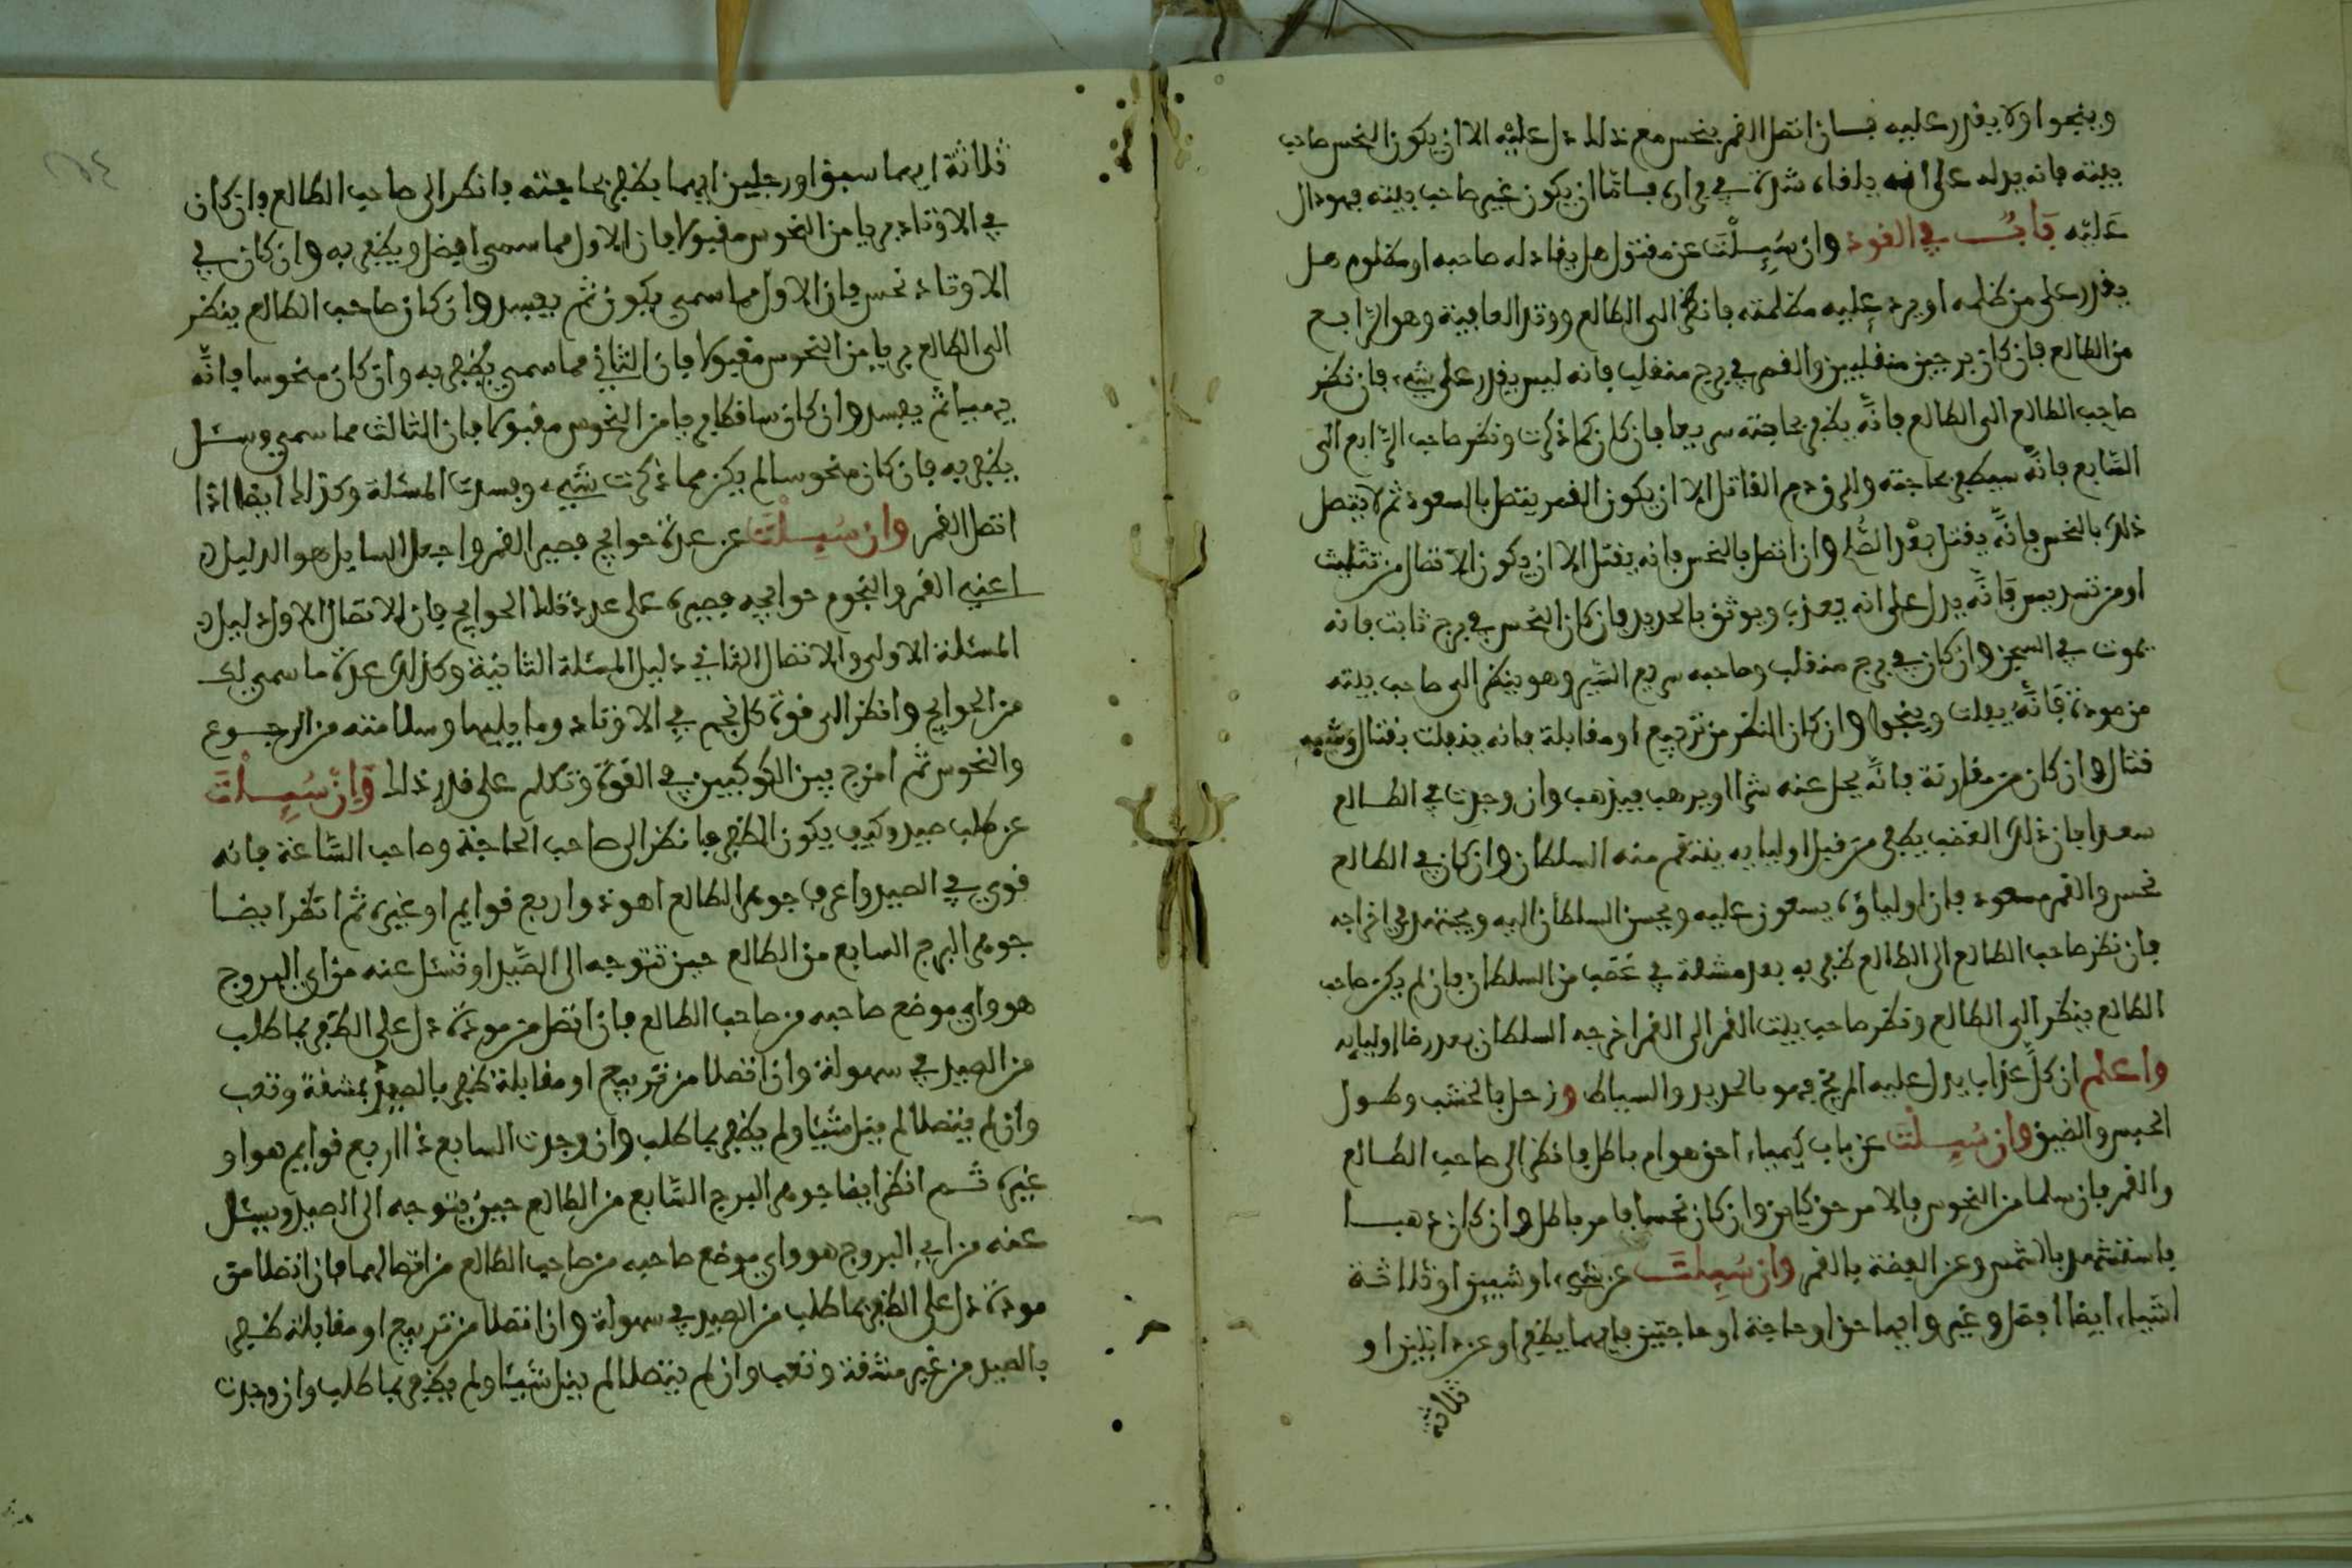 وينجوا ولا يقدر عليه فان اتصل القمر بنحس مع ذلك دل عليه الا ان يكون النحس صاحب
بيته فانه يدله على انه يلقاء شدة في فراره فاما ان يكون غير صاحب بيته فهو دال
عليه باب في القود وان سئلت عن مقتول هل يقاد له صاحبه او مظلوم هل
يقدر على من ظلمه او يرد عليه مظلمته فانظر الى الطالع ووتد العافية وهو الرابع
من الطالع فان كان برجين منقلبين والقمر في برج منقلب فانه ليس يقدر على شيء فان نظر
صاحب الطالع الى الطالع فانه يظفر بحاجته سريعا فان كان كما ذكرت ونظر صاحب الرابع الى
السابع فانه سيظفر بحاجته والى دم القاتل الا ان يكون القمر يتصل بالسعود ثم لا يتصل
ذلك بالنحس فانه يقتل بعد الصلح وان اتصل بالنحس فانه يقتل الا ان يكون الاتصال من تثليث
او من تسديس فانه يدل على انه يعذب ويوثق بالحديد فان كان النحس في برج ثابت فانه
يموت في السجن وان كان في برج منقلب وصاحبه سريع السير وهو ينظر الى صاحب بيته
من مودة فانه يفلت وينجوا وان كان النظر من تربيع او مقابلة فانه ينفلت بقتال وشبه
قتال وان كان من مقارنة فانه يحل عنه شرا او يرهب فيذهب وان وجدت في الطالع
سعدا فان ذلك الغضب يظفر من قبل اوليايه ينتقم منه السلطان وان كان في الطالع
نحس والقمر مسعود فان اولياؤه يسعون عليه ويحسن السلطان اليه ويجتهد في اخراجه
فان نظر صاحب الطالع الى الطالع ظفر به بعد مشقة في غضب من السلطان فان لم يكن صاحب
الطالع ينظر الى الطالع ونظر صاحب بيت القمر الى القمر اخرجه السلطان بعد رضا اوليايه
واعلم ان كل عذاب يدل عليه المريخ فهو بالحديد والسياط وزحل بالخشب وطول
الحبس والضيق وان سئلت عن باب كيمياء احق هو ام باطل فانظر الى صاحب الطالع
والقمر فان سلما من النحوس فالامر حق كاين وان كان نحسا فامر باطل وان كان ذهبا
فاستشهد بالشمس وعن الفضة بالقمر وان سئلت عن شيء او شيين او ثلاثة
اشياء ايضا افضل وغير وايها حق او حاجة او حاجتين بايهما يظفر او عن دابتين او
ثلاثة
ثلاثة ايهما سبق او رجلين ايهما يظفر بحاجته فانظر الى صاحب الطالع فان كان
في الاوتاد بريا من النحوس مقبولا فان الاول مما سمي افضل ويظفر به وان كان في
الاوتاد نحس فان الاول مما سمي يكون ثم يفسد وان كان صاحب الطالع ينظر
الى الطالع بريا من النحوس مقبولا فان الثاني مما سمي يظفر به وان كان منحوسا فانه
يرميا ثم يفسد وان كان ساقطا بريا من النحوس مقبولا فان الثالث مما سمي وسئل
يظفر به فان كان منحوسا لم يكن مما ذكرت شيء وفسدت المسئلة وكذلك ايضا اذا
اتصل القمر وان سئلت عن عدة حوايج فصير القمر واجعل السايل هو الدليل
اعني القمر والنجوم حوايجه فصيره على عدة تلك الحوايج فان الاتصال الاول دليل
المسئلة الاولى والاتصال الثاني دليل المسئلة الثانية وكذلك عدة ما سمي لك
من الحوايج وانظر الى قوة كل نجم في الاوتاد وما يليها وسلامته من الرجوع
والنحوس ثم امزج بين الكوكبين في القوة وتكلم على قدر ذلك وان سئلت
عن طلب صيد وكيف يكون الظفر فانظر الى صاحب الحاجة وصاحب الساعة فانه
قوي في الصيد واعرف جوهر الطالع اهو ذو اربع قوايم او غيره ثم انظر ايضا
جوهر البرج السابع من الطالع حين تتوجه الى الصيد او تسئل عنه من اي البروج
هو واي موضع صاحبه من صاحب الطالع فان اتصل من مودة دل على الظفر بما طلب
من الصيد في سهولة وان اتصلا من تربيع او مقابلة ظفر بالصيد بمشقة وتعب
وان لم يتصلا لم ينل شيئا ولم يظفر بما طلب وان وجدت السابع ذا اربع قوايم هو او
غيره ثم انظر ايضا جوهر البرج السابع من الطالع حين يتوجه الى الصيد ويسئل
عنه من اي البروج هو واي موضع صاحبه من صاحب الطالع من اتصالهما فان اتصلا من
مودة دل على الظفر بما طلب من الصيد في سهولة وان اتصلا من تربيع او مقابلة ظفر
بالصيد من غير مشقة وتعب وان لم يتصلا لم ينل شيئا ولم يظفر بما طلب وان وجدت